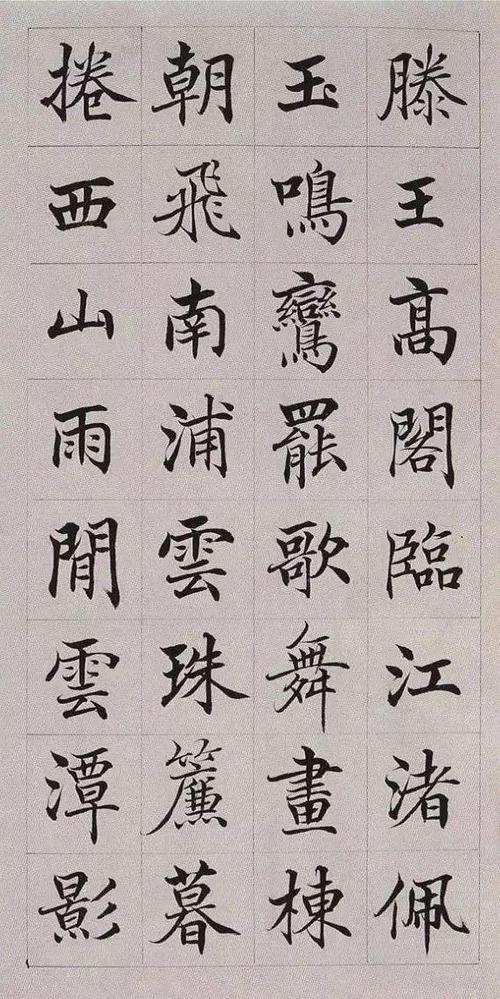 滕王高閣臨江渚佩
玉鳴鸞罷歌舞畫棟
朝飛南浦雲珠簾暮
捲西山雨閒雲潭影